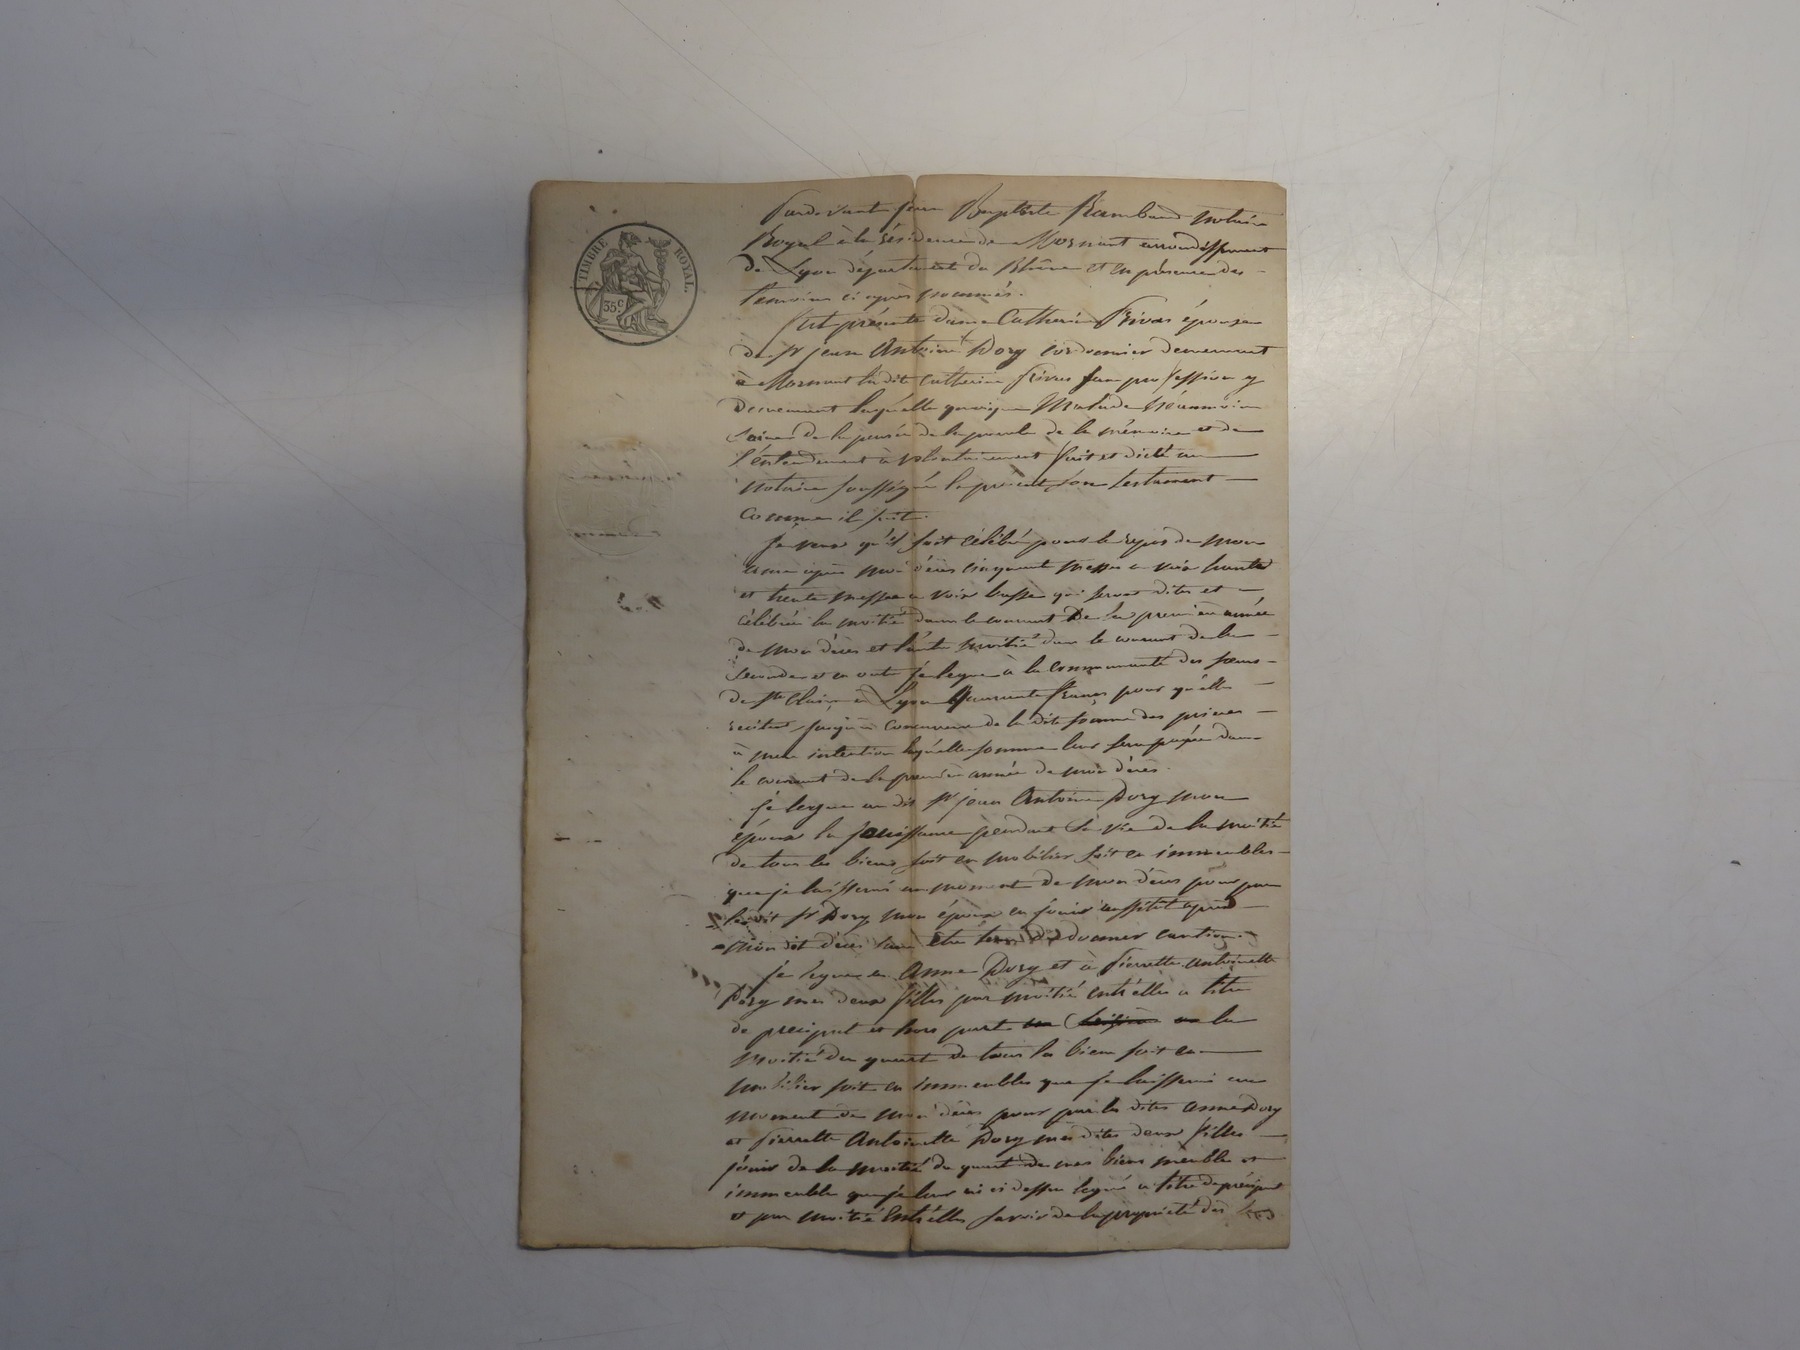 TIMBRE ROYAL.
35c
Pardevant Jean Baptiste Rambaud notaire
Royal à la résidence de Mornant arrondissement
de Lyon département du Rhône et en présence des
témoins ci après nommés.
fut présente dame Catherine Frivas épouse
de Sr jean Antoine Dory cordonnier demeurant
à Mornant la dite Catherine Frivas sans profession y
demeurant laquelle quoique Malade néanmoins
saine de la pensée de la parole de la mémoire et de
l'entendement à volontairement fait et dicté au
notaire soussigné le présent son testament
comme il suit.
Je veux qu'il soit célébré pour le repos de mon
ame après mon décès cinquante messes a voix haute
et trente messes a voix basse qui seront dites et
célébrées la moitié dans le courant de la première année
de mon décès et l'autre moitié dans le courant de la
seconde et en outre je legue à la communauté des sœurs
de Ste Claire à Lyon Quarante francs pour qu'elles
recitent jusqu'a concurrence de la dite somme des prieres
à mon intention laquelle somme leur sera payée dans
le courant de la première année de mon décès.
je legue au dit Sr jean Antoine Dory mon
époux la jouissance pendant sa vie de la moitié
de tous les biens soit en mobilier soit en immeubles
que je laisserai au moment de mon décès pour par
le dit Sr Dory mon époux en jouir aussitot après
mon dit décès sans etre tenu de donner caution.
je legue à Anne Dory et à Pierrette Antoinette
Dory mes deux filles par moitié entr'elles a titre
de preciput et hors part la
moitié du quart de tous les biens soit en
mobilier soit en immeubles que je laisserai au
moment de mon décès pour par les dites Anne Dory
et Pierrette Antoinette Dory mes dites deux filles
jouir de la moitié du quart de mes biens meubles et
immeubles que je leur ai ci dessus legué a titre de préciput
et par moitié entr'elles savoir de la propriété des